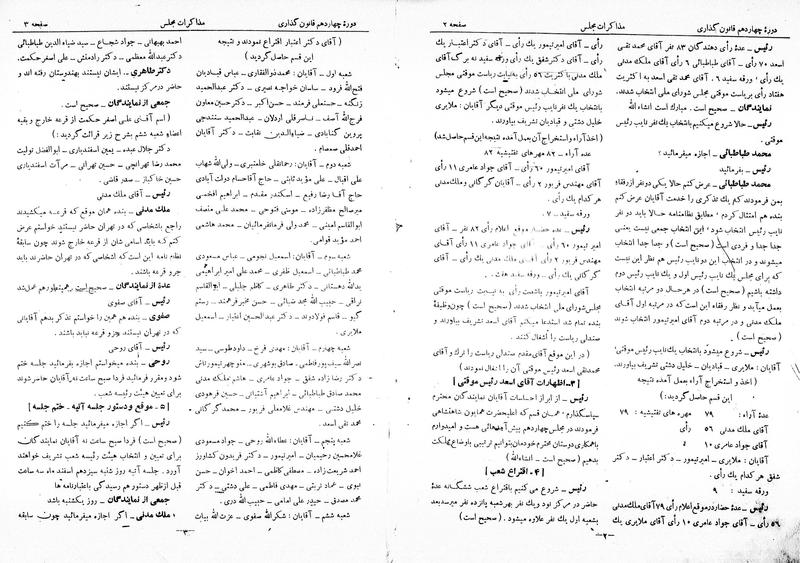 دورهٔ چهاردهم قانون گذاری
مذاکرات مجلس
صفحه ۲
رئیس ـ عدهٔ رأی دهندگان ۸۳ نفر آقای محمد تقی
اسعد ۷۰ رأی ـ آقای طباطبائی ۶ رأی آقای ملک مدنی
یك رأی ، ورقه سفید ۶ . آقای محمد تقی اسعد به اکثریت
هفتاد رأی بریاست موقتی مجلس شورای ملی انتخاب شدند.
نمایندگان ـ صحیح است. مبارك است انشاء الله
رئیس ـ حالا شروع میکنیم بانتخاب یك نفر نایب رئیس
موقتی .
محمد طباطبائی ـ اجازه میفرمائید ؟
رئیس ـ بفرمائید
محمد طباطبائی ـ عرض کنم حالا یکی دو نفر از رفقاء
بمن فرمودند کم یك تذکری را خدمت آقایان عرض کنم
بنده هم امتثال کردم ، مطابق نظامنامه حالا باید دو نفر
نایب رئیس انتخاب شود ، این انتخاب جمعی نیست یعنی
جدا جدا و فردی است (صحیح است) و جدا جدا انتخاب
میشوند و در انتخاب این دو نایب رئیس هم نظر این نیست
که برای مجلس یك نایب رئیس اول و یك نایب رئیس دوم
داشته باشیم (صحیح است) در هرحال در مرتبه انتخاب
بعمل میآید و نظر رفقاء این است که در مرتبه اول آقـای
ملك مدنی و در مرتبه دوم آقای امیرتیمور انتخاب شوند
(صحیح است) .
رئیس ـ شروع میشود بانتخاب یك نایب رئیس موقتی،
آقایان : ملایری ـ قبادیان ـ خلیل دشتی نظارت بفرمایند.
( اخذ و استخراج آراء بعمل آمده نتیجه
این قسم حاصل گردید) :
عدهٔ آراء : ۷۹ مهره های تفتیشیه : ۷۹
آقای ملك مدنی ۵۶ رأی
آقای جواد عامری ۱۰ «
آقایان : ملایری ـ امیرتیمور ـ دکتر اعتبار ـ دکتر
شفق هر کدام یك رأی.
ورقه سفید : ۹
رئیس ـ عدهٔ حضار در موقع اعلام رأی ۷۹ آقای ملك مدنی
۵۶ رأی ـ آقای جواد عامری ۱۰ رأی آقای ملایری یك
رأی ـ آقای امیرتیمور یك رأی ـ آقای دکتر اعتبار یك
رأی ـ آقای دکتر شفق یك رأی ورقه سفید نه برگ آقای
ملك مدنی با اکثریت ۵۶ رأی به نیابت ریاست موقتی مجلس
شورای ملی انتخاب شدند (صحیح است) شروع میشود
بانتخاب یك نفر نایب رئیس موقتی دیگر آقایان : ملایری
خلیل دشتی و قبادیان تشریف بیاورند.
(اخذ آراء و استخراج آن بعمل آمده نتیجه این قسم حاصل شد)
عده آراء ـ ۸۲ مهر های تفتیشیه ۸۲
آقای امیرتیمور ۶۰ رأی ـ آقای جواد عامری ۱۱ رأی
آقای مهندس فریور ۲ رأی ـ آقایان گرگانی و ملك مدنی
هر کدام یك رأی.
ورقه سفید ـ ۷.
رئیس ـ عده حضار در موقع اعلام رأی ۸۲ نفر ـ آقای
امیر تیمور ۶۰ رأی ـ آقای جواد عامری ۱۱ رأی آقـای
مهندس فریور ۲ رأی آقـای ملك مدنی یك رأی ـ آقای
گرگانی یك رأی ـ ورقه سفید هفت.
آقای امیرتیمور با شصت رأی به نیـابت ریاست موقتی
مجلس شورای ملی انتخاب شدند (صحیح است) چون وظیفهٔ
بنده تمام شد استدعا میکنیم آقای اسعد تشریف بیاورند و
صندلی ریاست را اشغال کنند.
(در این موقع آقای مقدم صندلی ریاست را ترك و آقای
محمدتقی اسعد رئیس موقتی آن را اشغال نمودند)
[ ۳ـ اظهارات آقای اسعد رئیس موقتی ]
رئیس ـ از ابراز احساسات آقایان نمایندگان محترم
سپاسگذارم ـ همان قسم که اعلیحضرت همایون شاهنشاهی
فرمودند در مجلس چهاردهم پیش آمدهائی هست و امیدوارم
با همکاری دوستان محترم خودمان بتوانیم ترتیبی باوضاع مهلکت
بدهیم (صحیح است ـ انشاءالله)
[ ۴ـ اقتراع شعب ]
رئیس ـ شروع می کنیم باقتراع شعب ششگانه عدهٔ
حاضر در مرکز نود و یك نفر بهر شعبه پانزده نفر میرسد بعد
بشعبه اول یك نفر علاوه میشود. (صحیح است)
ـ۲ـ
دورهٔ چهاردهم قانون گذاری
مذاکرات مجلس
صفحه ۳
( آقای دکتر اعتبار اقتراع نمودند و نتیجه
این قسم حاصل گردید )
شعبه اول ـ آقایان : محمد ذوالفقاری ـ عباس قبادیان
فتح الله فرود ـ ساسان خواجه نصیری ـ دکتر عبدالحمید
زنگنه ـ حسنعلی فرمند ـ حسن اکبر ـ دکتر حسین معاون
فرج الله آصف ـ ناصرقلی اردلان ـ عبدالحمید سنندجی
پروین گنابادی ـ ضیاءالدین نقابت ـ دکتر آقایان
احمدقلی صمصام ـ
شعبه دوم ـ آقایان : رحمانقلی خلعتبری ـ ولی الله شهاب
علی اقبال ـ علی مؤید ثابتی ـ حاج آقا حسام دولت آبادی
حاج آقا رضا رفیع ـ اسکندر مقدم ـ ابراهیم افخمی
میرصالح مظفرزاده ـ موسی فتوحی ـ محمد علی منصف
ابوالقاسم امینی ـ محمد ولی فرمانفرمائیان ـ محمد هاشمی
احمد مؤید قوامی .
شعبه سوم ـ آقایان : اسمعیل نجومی ـ عباس مسعودی
محمد طباطبائی ـ اسمعیل ظفری ـ محمد علی امیر ابراهیمی
یدالله دهستانی ـ دکتر طاهری ـ کاظم جلیلی ـ ابوالقاسم
نراقی ـ حبیب الله مجد ضیائی ـ حسن مخبر فرهمند ـ رستم
گیو ـ قاسم فولادوند ـ دکتر عبدالحسین اعتبار ـ اسمعیل
ملایری .
شعبه چهارم ـ آقایان : مهدی فرخ ـ داود طوسی ـ سید
نصرالله سیف پور فاطمی ـ صادق بوشهری ـ منوچهر تیمورتاش
دکتر رضا زاده شفق ـ جواد عامری ـ هاشم ملك مدنی
محمد صادق طباطبائی ـ ابراهیم آشتیانی ـ حسین فرهودی
خلیل دشتی ـ مهندس غلامعلی فریور ـ محمد گرگانی
محمد تقی اسعد .
شعبه پنجم ـ آقایان : عطاءالله روحی ـ جواد مسعودی
غلامحسین رحیمیان ـ امیر تیمور ـ دکتر فریدون کشاورز
احمد شریعت زاده ـ مصطفی کاظمی ـ احمد اخوان ـ حسن
نبوی ـ عماد تربتی ـ مهدی فاطمی ـ علی دشتی ـ دکتر
محمد مصدق ـ حیدرعلی امامی ـ حبیب الله دری.
شعبه ششم ـ آقایان : شکرالله صفوی ـ عزت الله بیات
احمد بهبهانی ـ جواد شجاع ـ سید ضیاء الدین طباطبائی
دکتر عبدالله معظمی ـ دکتر رادمنش ـ علی اصغر حکمت.
دکتر طاهری ـ ایشان نیستند بهندوستان رفته اند و
حاضر در مرکز نیستند.
جمعی از نمایندگان ـ صحیح است.
( اسم آقای علی اصغر حکمت از قرعه خارج و بقیه
اعضاء شعبه ششم بشرح زیر قرائت گردید: )
دکتر جلال عبده ـ یمین اسفندیاری ـ ابوالفضل تولیت
محمد رضا تهرانچی ـ حسین تهرانی ـ مرآت اسفندیاری
حسین خاکباز ـ صدر قاضی .
رئیس ـ آقای ملك مدنی
ملك مدنی ـ بنده همان موقع که قرعه میکشیدند
راجع باشخاصی که در تهران حاضر نیستند خواستم عرض
کنم که باید اسامی شان از قرعه خارج شوند چون سابقهٔ
نظام نامه این است که اشخاصی که در تهران حاضرند باید
جزو قرعه باشند.
عدهٔ از نمایندگان ـ صحیح است. همینطور هم عمل شد
رئیس ـ آقای صفوی
صفوی ـ بنده هم همین را خواستم تذکر بدهم آقایانی
که در تهران نیستند جزو قرعه نباید باشند .
رئیس ـ آقای روحی
روحی ـ بنده میخواستم اجازه بفرمائید جلسه ختم
شود و مقرر فرمائید فردا صبح ساعت نه آقایان حاضر شوند
برای تعیین هیئت رئیسه شعب.
[ ۵ ـ موقع و دستور جلسه آتیه ـ ختم جلسه ]
رئیس ـ اگر اجازه میفرمائید جلسه را ختم کنیم
(صحیح است) فردا صبح ساعت نه آقایان نمایندگان
برای تعیین و انتخاب هیئت رئیسهٔ شعب تشریف خواهند
آورد. جلسه آتیه روز شنبه سیزدهم اسفند ماه سه ساعت
قبل از ظهر دستور هم رسیدگی باعتبارنامه ها
جمعی از نمایندگان ـ روز یکشنبه باشد
ملك مدنی ـ اگر اجازه میفرمائید چون سابقه
ـ۳ـ